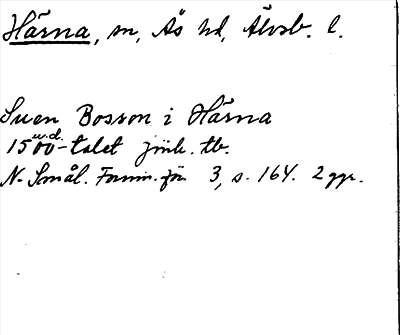 Härna, sn, Ås hd, Älvsb. l.
Suen Bosson i Härna
u.d.
1500-talet jönk. tb.
N. Smål. Fornm.för. 3, s. 164. 2 ggr.